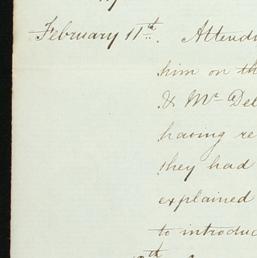 February 11th. Attend
him on th
& Mr. Del
having re
they had
explained
to introduc
th